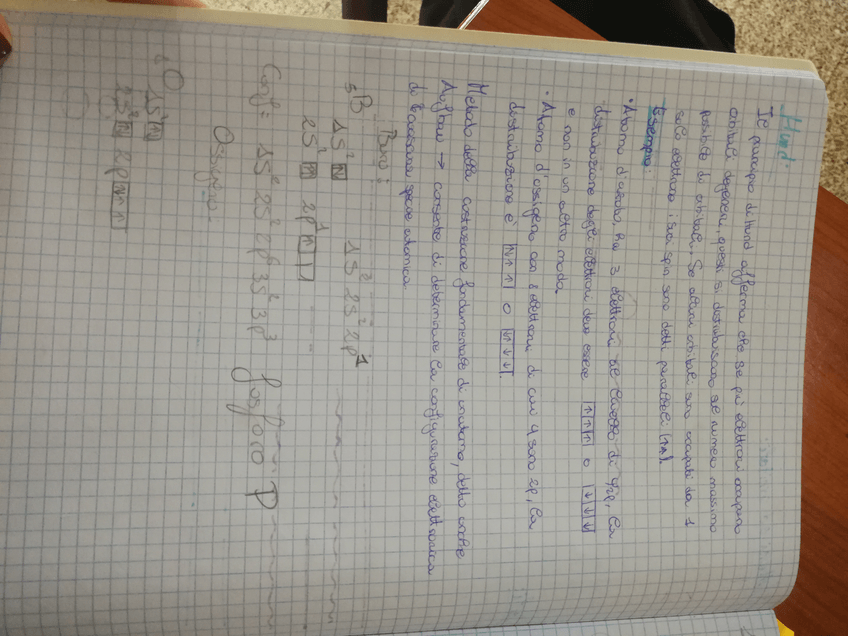 Hund.
Il principio di Hund afferma che se più elettroni occupano
orbitali degeneri, questi si distribuiscono sul numero massimo
possibile di orbitali. Se alcuni orbitali sono occupati da 1
solo elettrone i suoi spin sono detti paralleli (↑↑).
Esempio:
• Atomo d'azoto, ha 3 elettroni sul livello di 2p, la
distribuzione degli elettroni deve essere ↑↑↑ o ↓↓↓
e non in un altro modo.
• Atomo d'ossigeno con 8 elettroni di cui 4 sono 2p, la
distribuzione è ↑↓↑↑ o ↑↓↓↓.
Metodo della costruzione fondamentale di un atomo, detto anche
Aufbau → consente di determinare la configurazione elettronica
di qualsiasi specie atomica.
Boro:
5B 1S² 2S² 2p¹
1S² ↑↓
2S² ↑↓ 2p¹ ↑
Conf = 1S² 2S² 2p⁶ 3S² 3p³ fosforo P
Ossigeno:
8O
1S² ↑↓
2S² ↑↓ 2p ↑↓↑↑